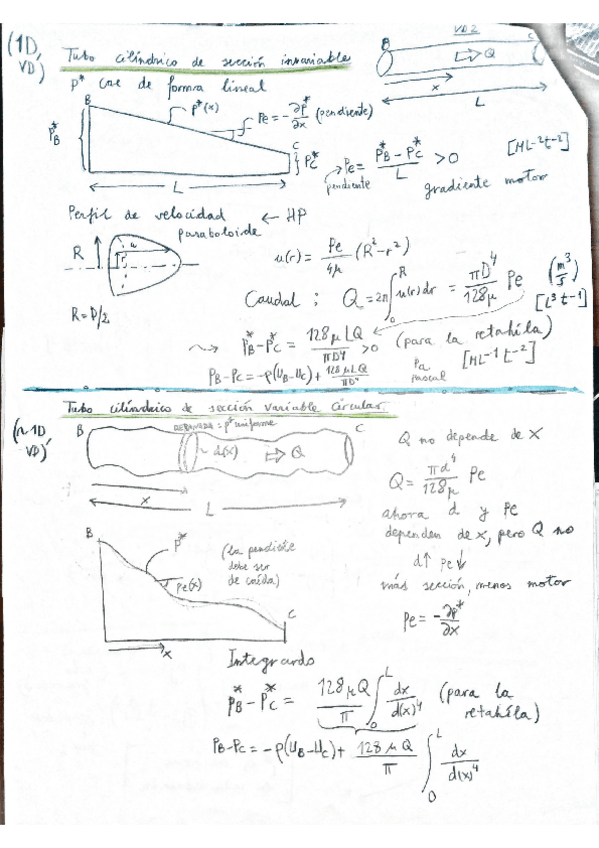 (1D, VD)
Tubo cilíndrico de sección invariable
VD2
B C
Q
x
L
p* cae de forma lineal
B
p*(x)
Pe = -∂p*/∂x (pendiente)
P*B
C
P*C
L
Pe = (P*B - P*C)/L > 0
[ML⁻²t⁻²]
pendiente
gradiente motor
Perfil de velocidad ← HP
paraboloide
R
u
r
R=D/2
u(r) = Pe/4μ (R²-r²)
Caudal ; Q = 2π ∫₀ᴿ u(r)dr = πD⁴/128μ Pe (m³/s)
[L³t⁻¹]
P*B - P*C = 128μLQ/πD⁴ > 0 (para la retahíla)
PB-PC = -ρ(UB-UC) + 128μLQ/πD⁴
Pa
pascal
[ML⁻¹t⁻²]
Tubo cilíndrico de sección variable circular
(~1D, VD)
REBANADA = p* uniforme
B C
d(x)
Q
x
L
Q no depende de x
Q = πd⁴/128μ Pe
ahora d y Pe
dependen de x, pero Q no
d↑ Pe↓
más sección, menos motor
Pe = -∂p*/∂x
B
p*
(la pendiente
debe ser
de caída)
Pe(x)
C
x
Integrando
P*B - P*C = 128μQ/π ∫₀ᴸ dx/d(x)⁴ (para la
retahíla)
PB-PC = -ρ(UB-UC) + 128μQ/π ∫₀ᴸ dx/d(x)⁴